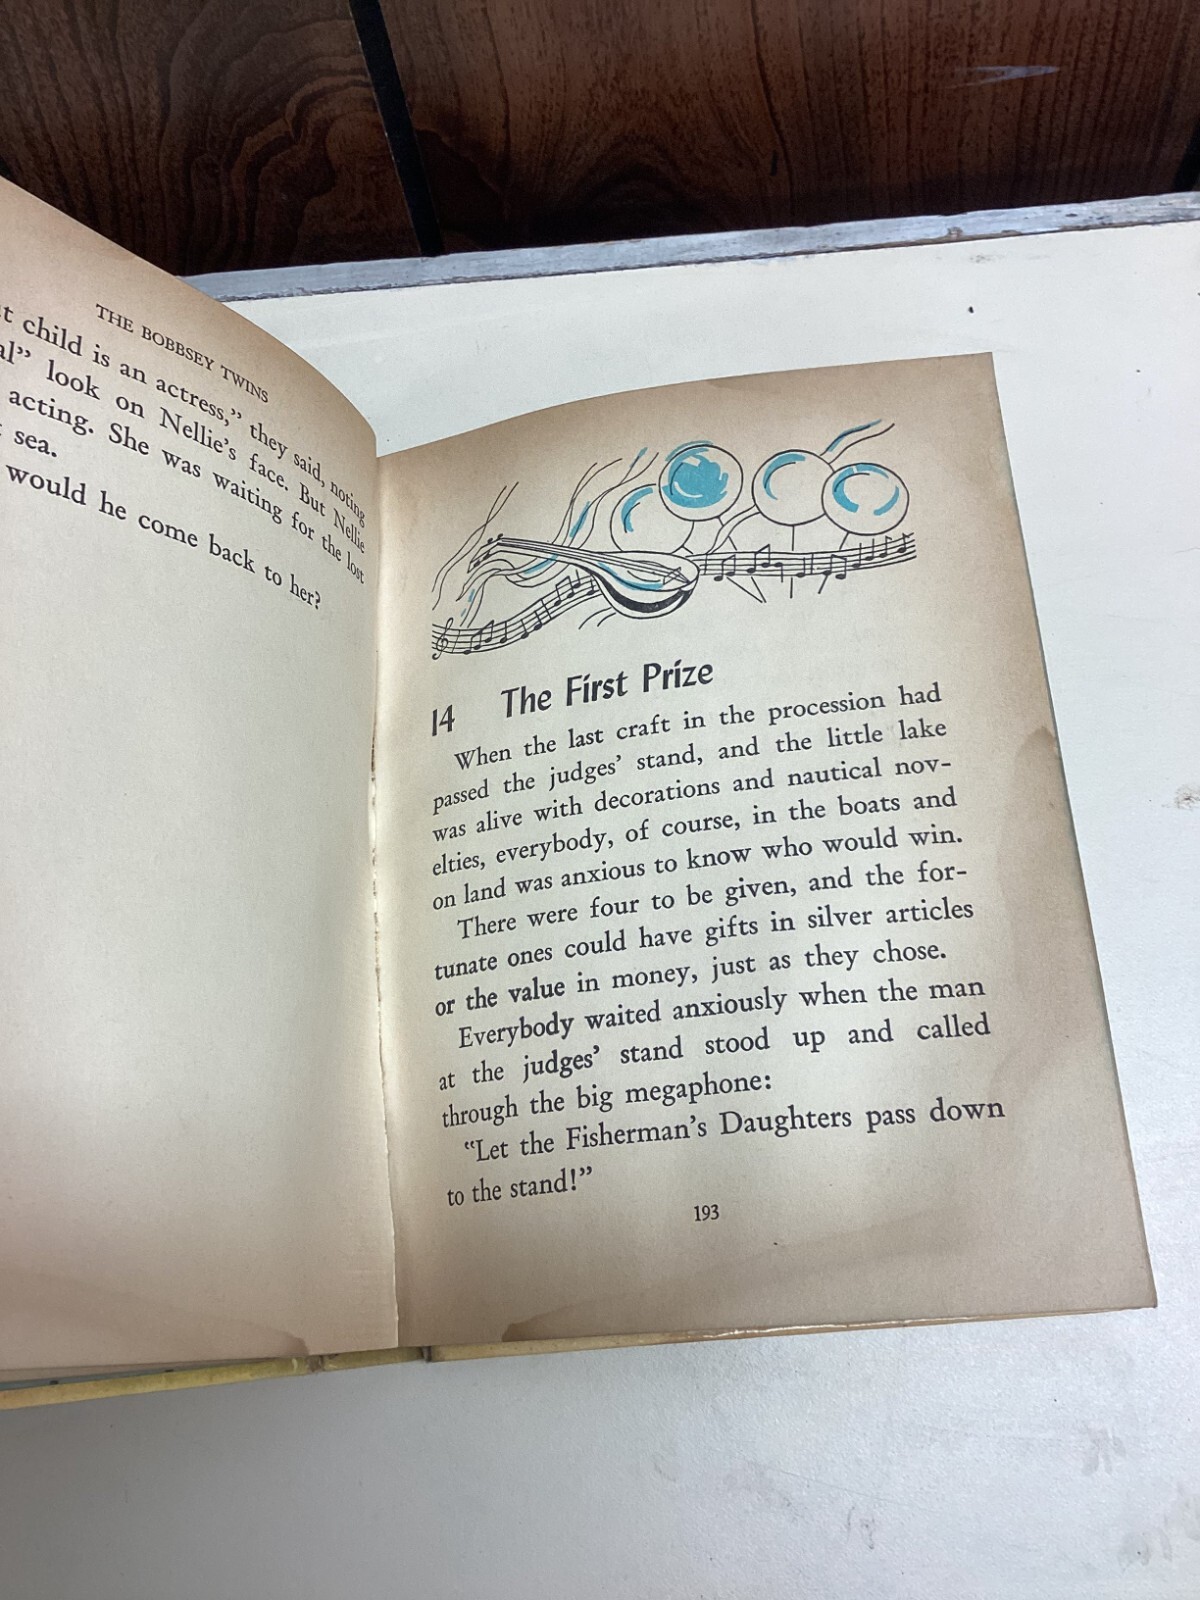 THE BOBBSEY TWINS
child is an actress,” they said, noting
look on Nellie’s face. But Nellie
acting. She was waiting for the lost
sea.
would he come back to her?
14 The First Prize
When the last craft in the procession had
passed the judges’ stand, and the little lake
was alive with decorations and nautical nov-
elties, everybody, of course, in the boats and
on land was anxious to know who would win.
There were four to be given, and the for-
tunate ones could have gifts in silver articles
or the value in money, just as they chose.
Everybody waited anxiously when the man
at the judges’ stand stood up and called
through the big megaphone:
“Let the Fisherman’s Daughters pass down
to the stand!”
193